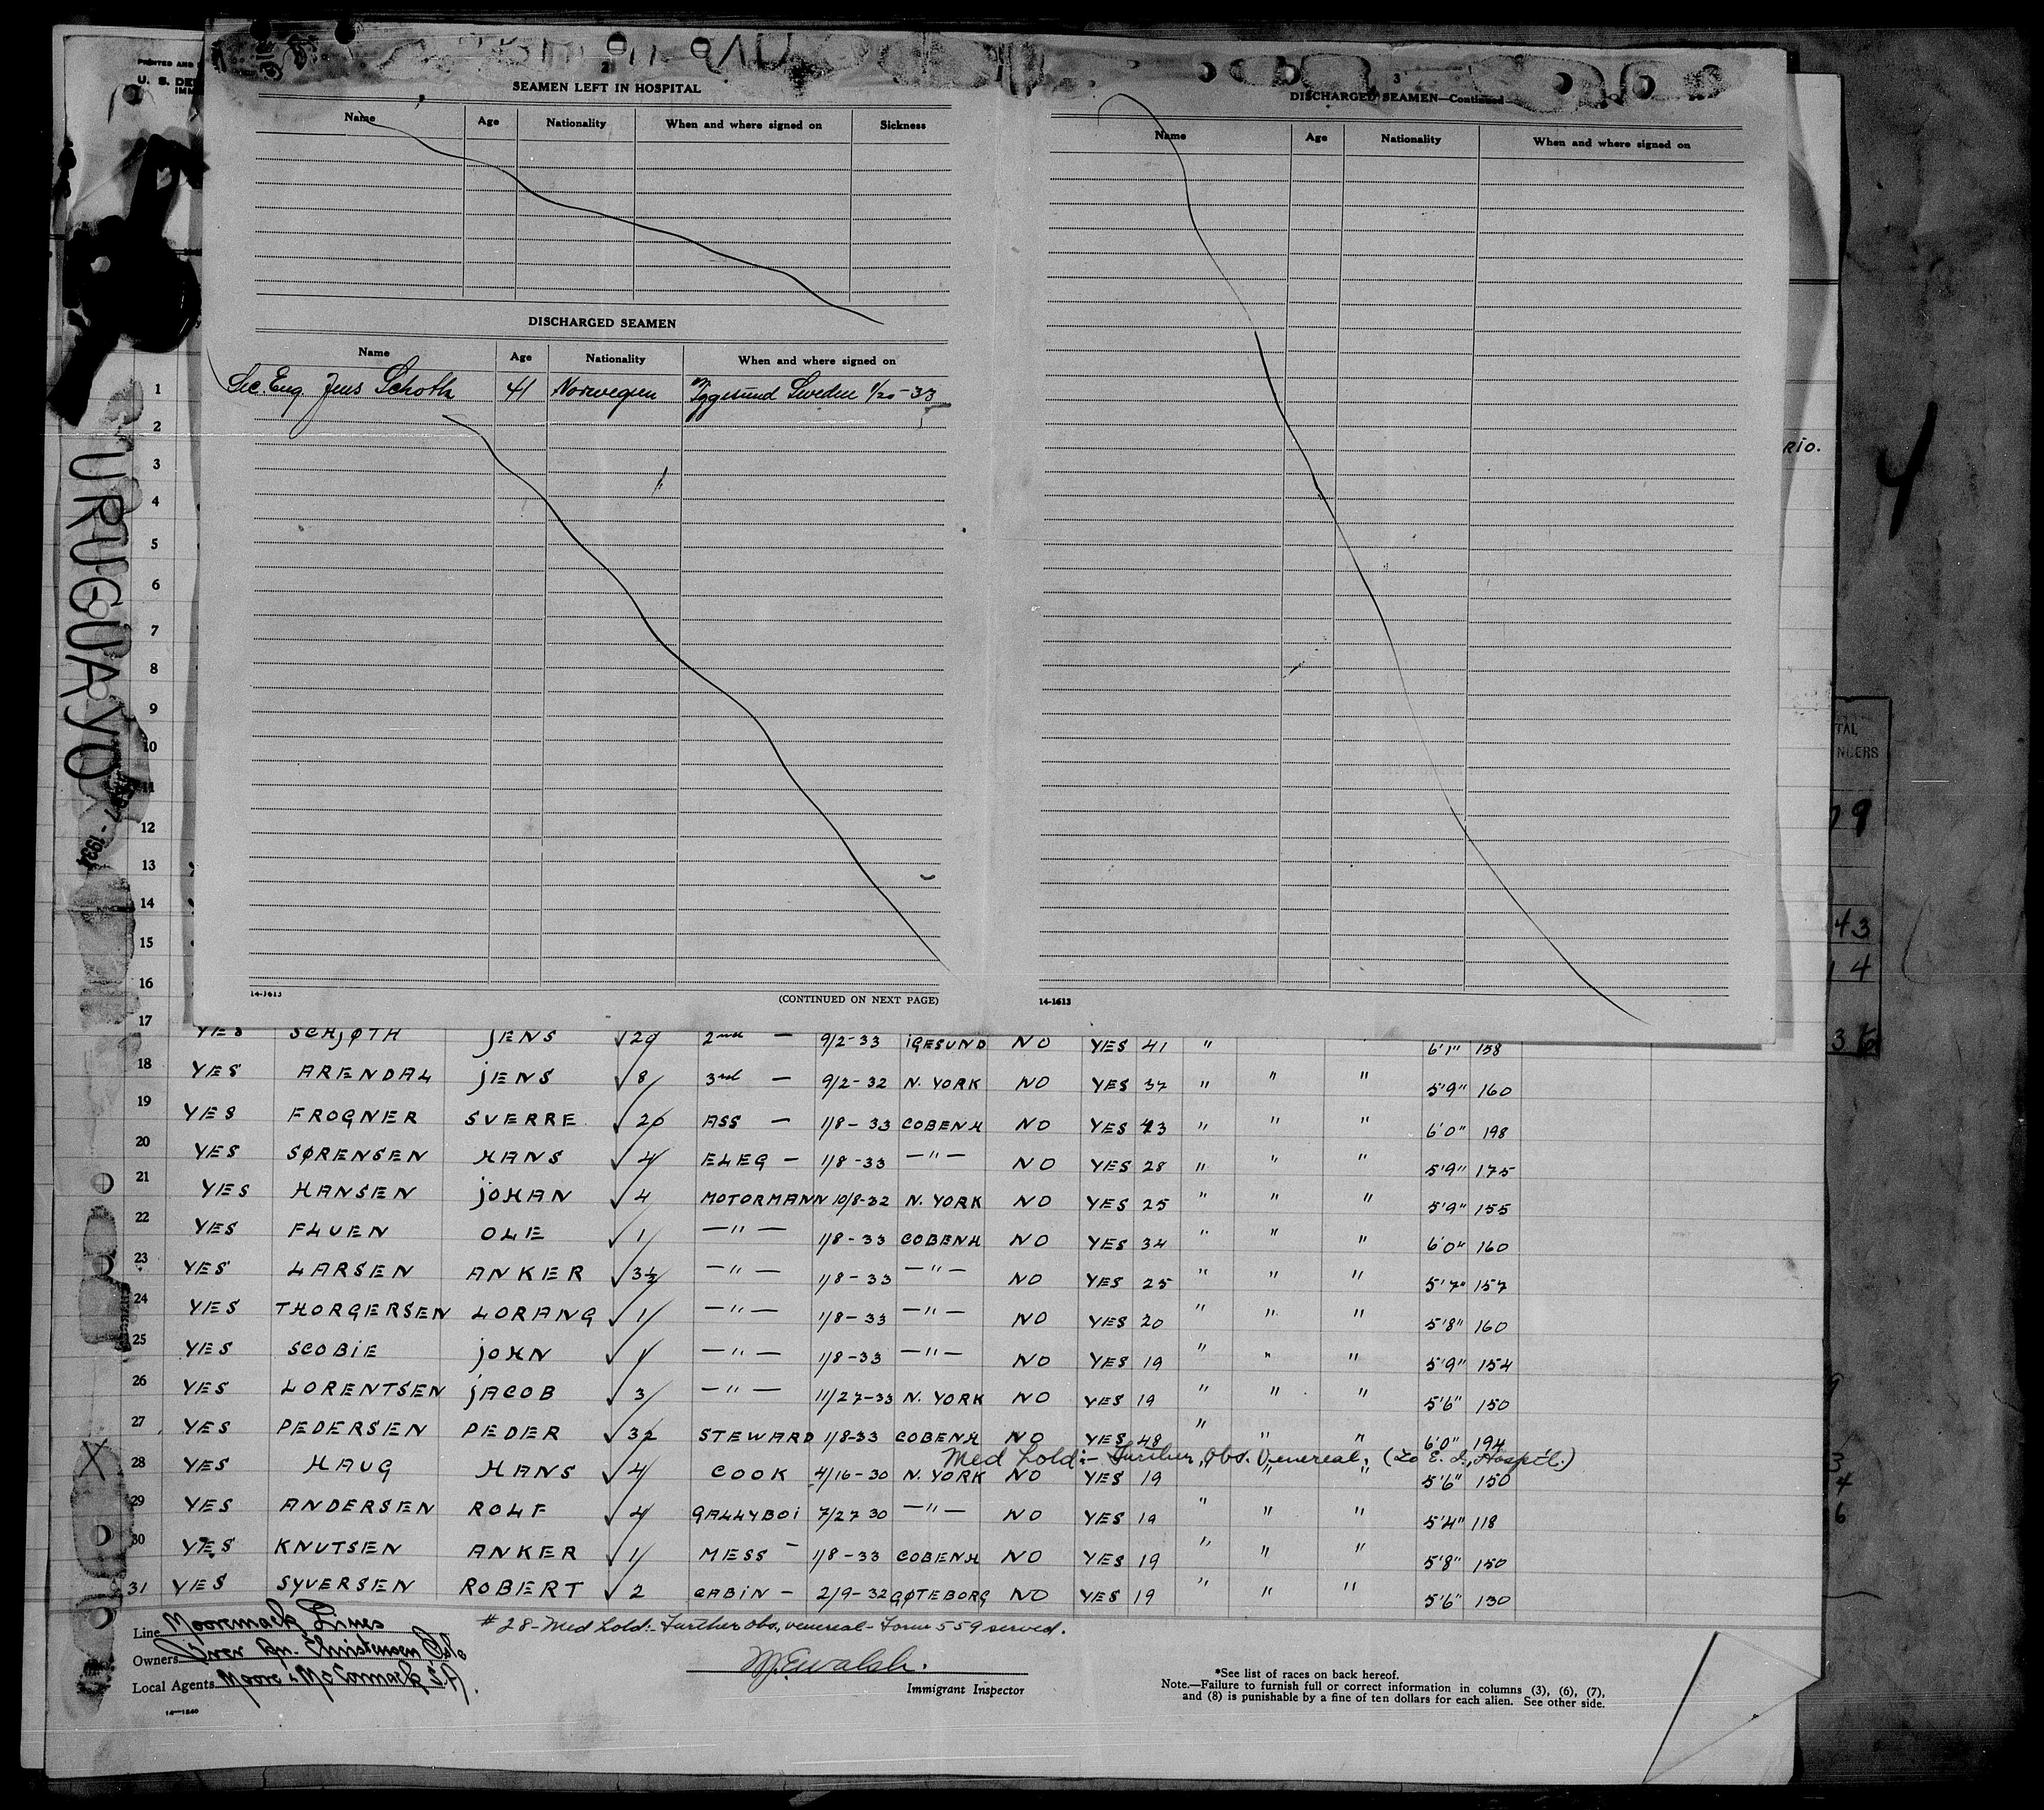 PRINTED AND
U. S. DE
IMM
SEAMEN LEFT IN HOSPITAL
Name Age Nationality When and where signed on Sickness
DISCHARGED SEAMEN
Name Age Nationality When and where signed on
Sec. Eng Jens Schoth 41 Norwegen Iggesund Sweden 1/20-33
14-1613
(CONTINUED ON NEXT PAGE)
3
DISCHARGED SEAMEN—Continued
Name Age Nationality When and where signed on
14-1613
URUGUAYO
1934
RIO.
4
TAL
NGERS
79
43
14
36
1
2
3
4
5
6
7
8
9
10
11
12
13
14
15
16
17 YES SCHJØTH JENS √20 2nd — 9/2-33 IGESUND NO YES 41 " 6'1" 158
18 YES ARENDAL JENS √8 3rd — 9/2-32 N. YORK NO YES 37 " " " 5'9" 160
19 YES FROGNER SVERRE √20 ASS — 1/8-33 COBENH NO YES 43 " " " 6'0" 198
20 YES SØRENSEN HANS √4 ELEG — 1/8-33 —"— NO YES 28 " " " 5'9" 175
21 YES HANSEN JOHAN √4 MOTORMANN 10/8-32 N. YORK NO YES 25 " " " 5'9" 155
22 YES FLUEN OLE √1 —"— 1/8-33 COBENH NO YES 34 " " " 6'0" 160
23 YES LARSEN ANKER √3½ —"— 1/8-33 —"— NO YES 25 " " " 5'7" 157
24 YES THORGERSEN LORANG √1 —"— 1/8-33 —"— NO YES 20 " " " 5'8" 160
25 YES SCOBIE JOHN √1 —"— 1/8-33 —"— NO YES 19 " " " 5'9" 154
26 YES LORENTSEN JACOB √3 —"— 11/27-33 N. YORK NO YES 19 " " " 5'6" 150
27 YES PEDERSEN PEDER √32 STEWARD 1/8-33 COBENH NO YES 48 " " " 6'0" 194
Med hold:- Further Obs. Venereal, (To E. I. Hospt'l.)
X 28 YES HAUG HANS √4 COOK 4/16-30 N. YORK NO YES 19 " " 5'6" 150
29 YES ANDERSEN ROLF √4 GALLYBOI 7/27 30 —"— NO YES 19 " " " 5'4" 118
30 YES KNUTSEN ANKER √1 MESS — 1/8-33 COBENH NO YES 19 " " " 5'8" 150
31 YES SYVERSEN ROBERT √2 CABIN — 2/9-32 GØTEBORG NO YES 19 " " " 5'6" 130
#28-Med hold:- Further obs., venereal - Form 559 served.
Line Mooremack Lines
Owners Iver An. Christensen Oslo
Local Agents Moore & McCormack S.A.
14—1240
W. Ewalsh.
Immigrant Inspector
*See list of races on back hereof.
Note.—Failure to furnish full or correct information in columns (3), (6), (7),
and (8) is punishable by a fine of ten dollars for each alien. See other side.